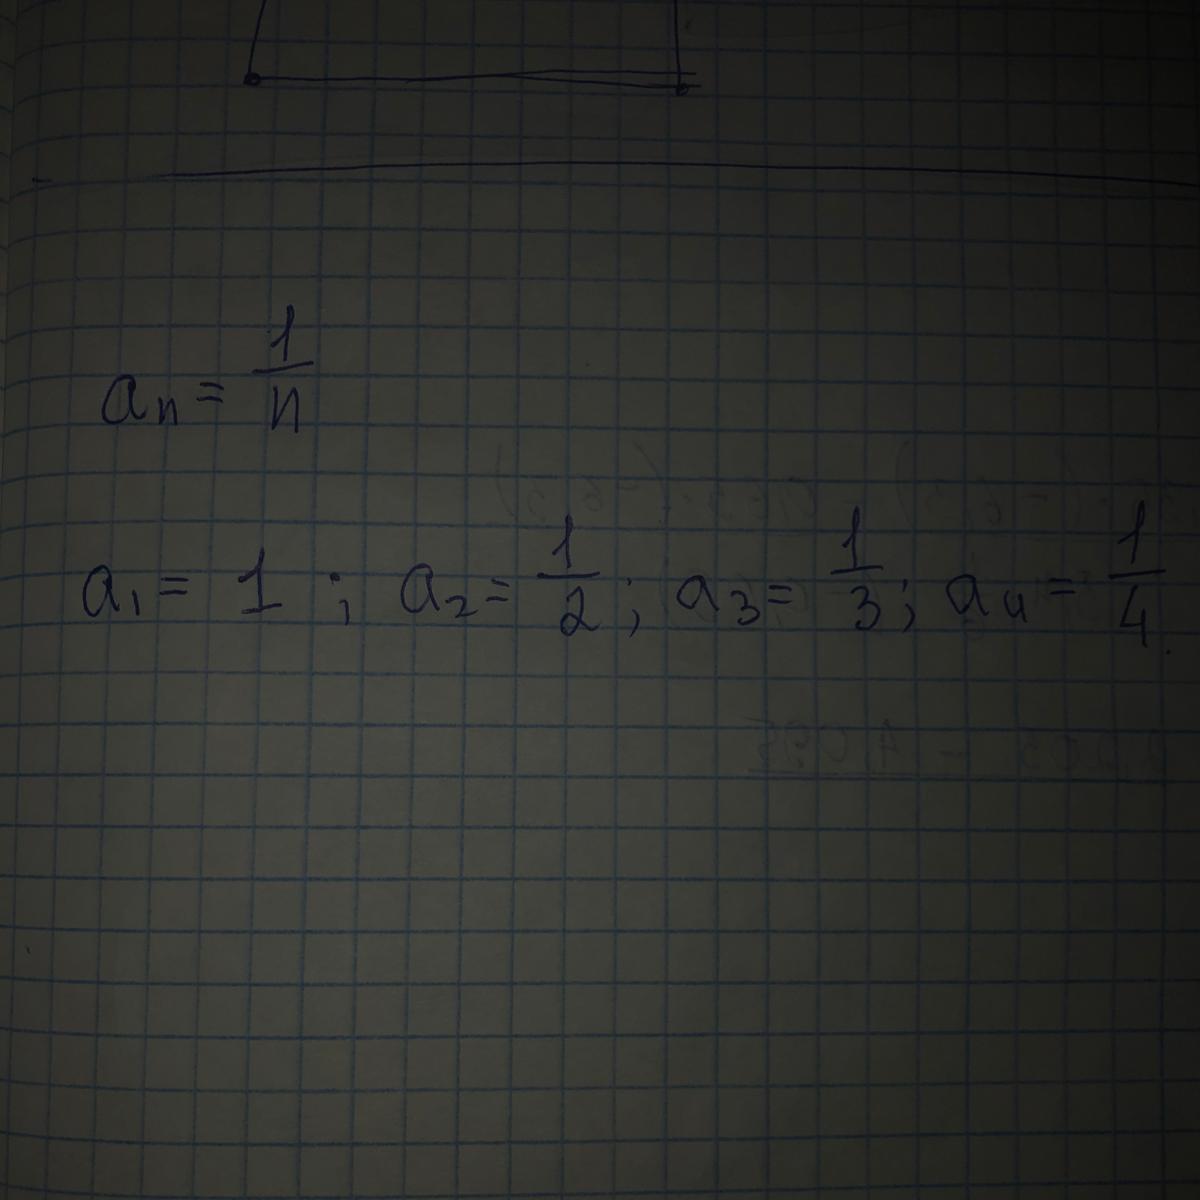 aₙ = 1/n
a₁ = 1 ; a₂ = 1/2 ; a₃ = 1/3 ; a₄ = 1/4